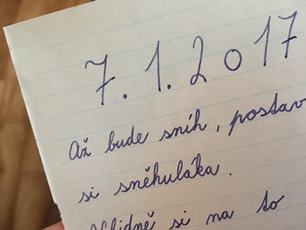 7.1.2017
Až bude sníh, postav
si sněhuláka.
Klidně si na to